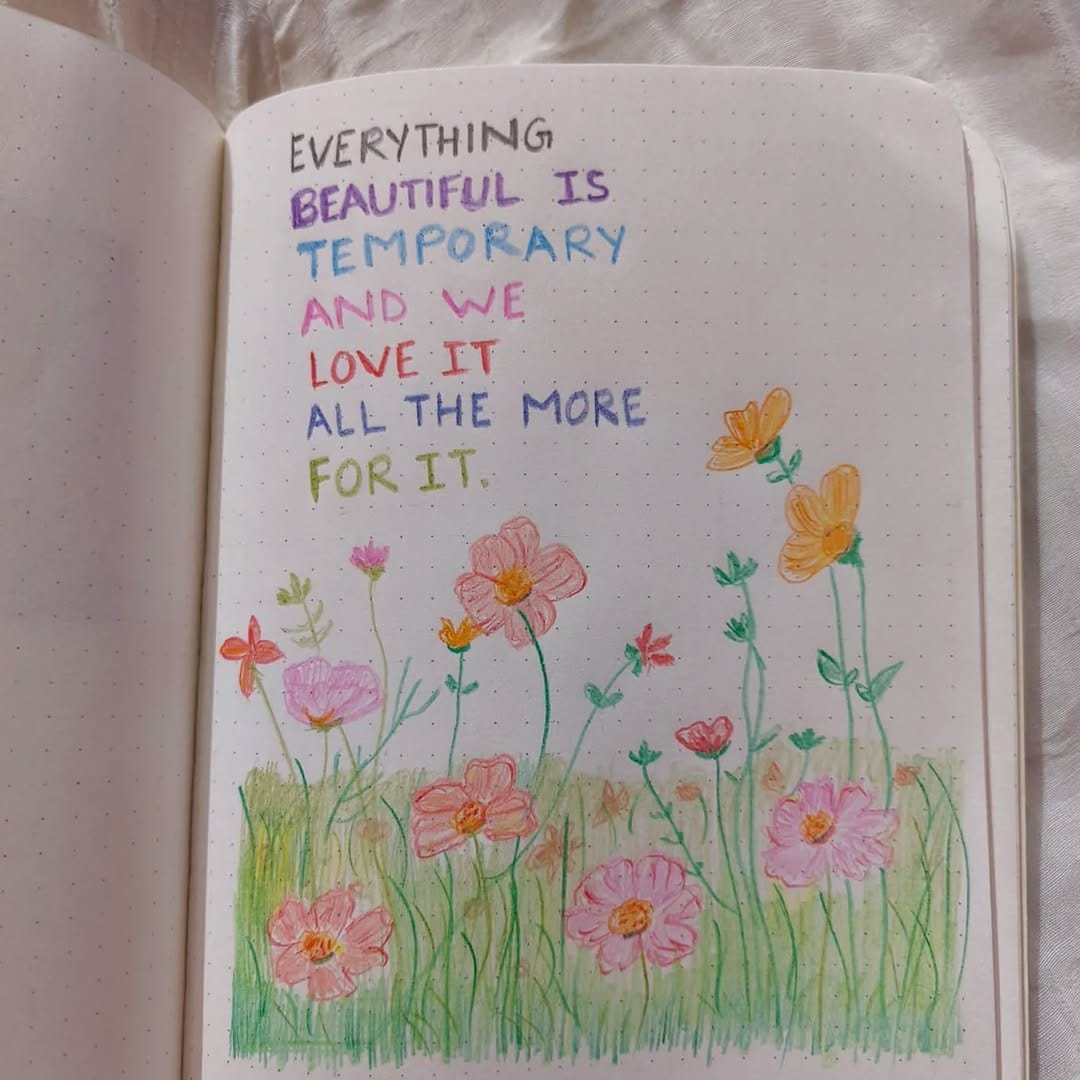 EVERYTHING
BEAUTIFUL IS
TEMPORARY
AND WE
LOVE IT
ALL THE MORE
FOR IT.